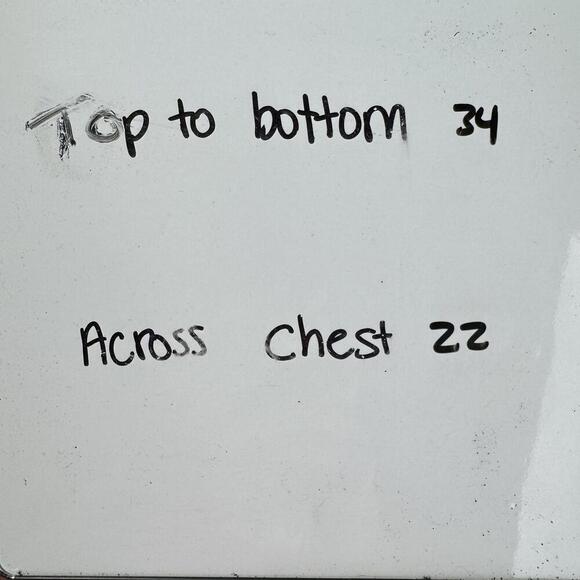 Top to bottom 34
Across Chest 22